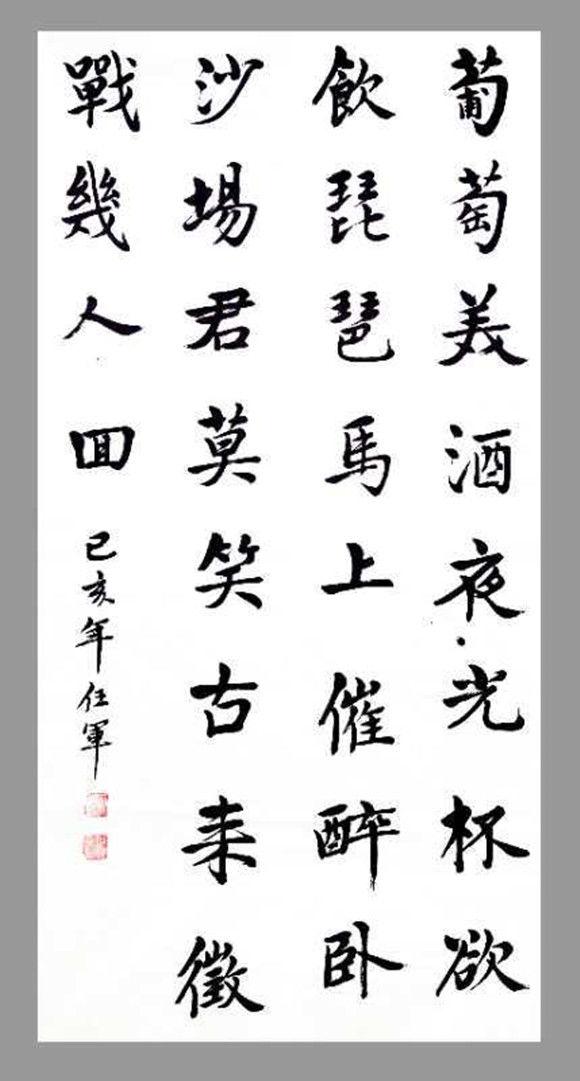 葡萄美酒夜光杯欲
飲琵琶馬上催醉卧
沙場君莫笑古来徵
戰幾人回
己亥年任軍